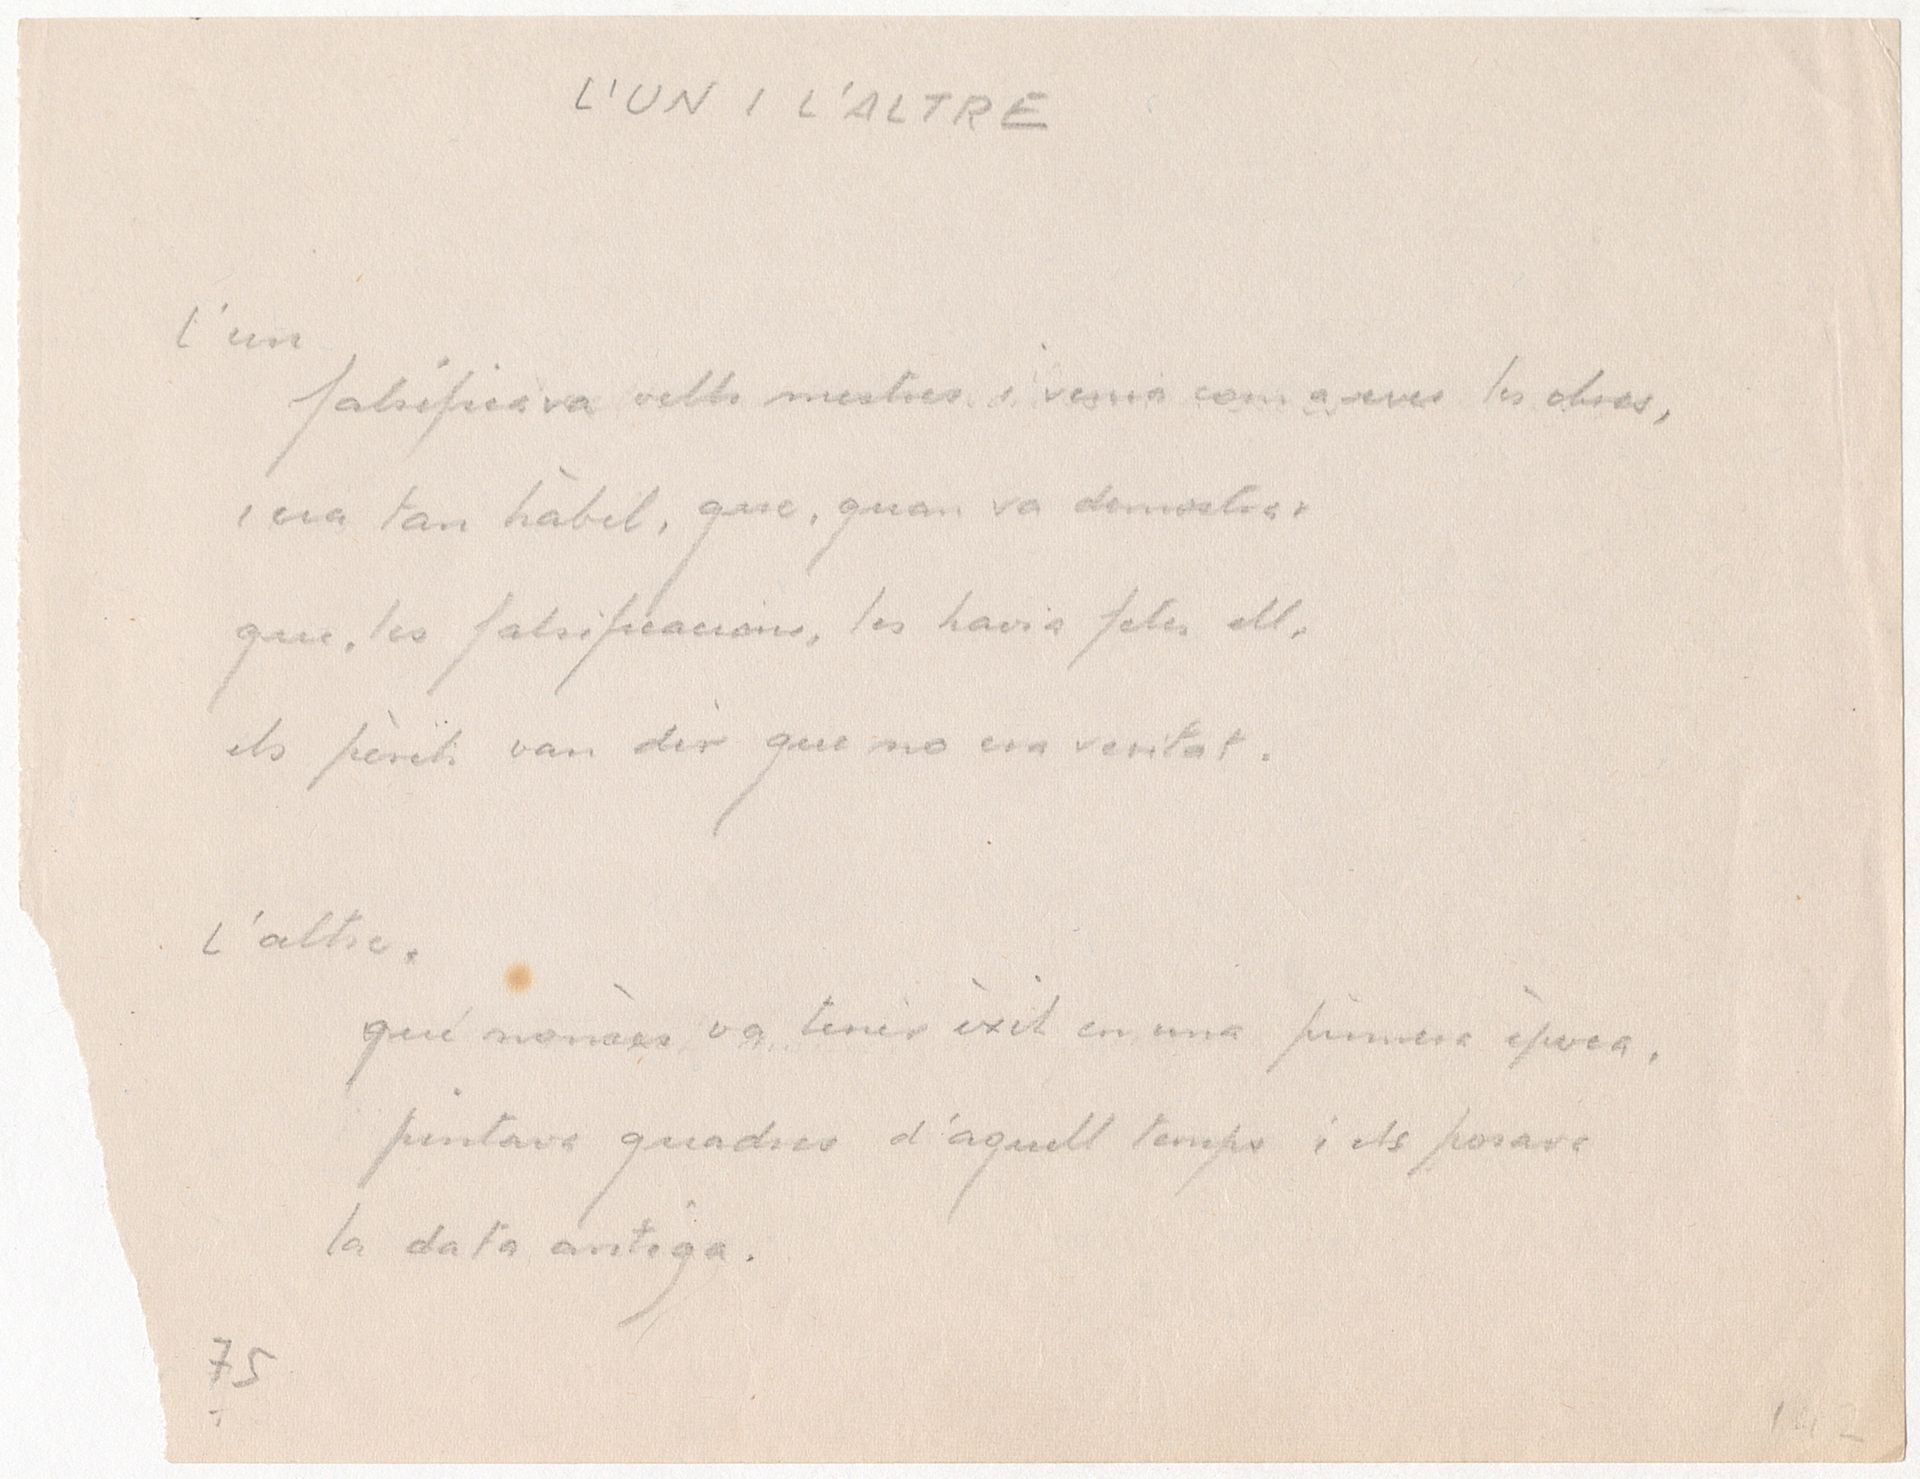 L'UN I L'ALTRE
L'un
falsificava vells mestres i venia com a seves les obres,
i era tan hàbil, que, quan va demostrar
que, les falsificacions, les havia fetes ell,
els pèrits van dir que no era veritat.
L'altre,
que només va tenir èxit en una primera època,
pintava quadres d'aquell temps i els posava
la data antiga.
75